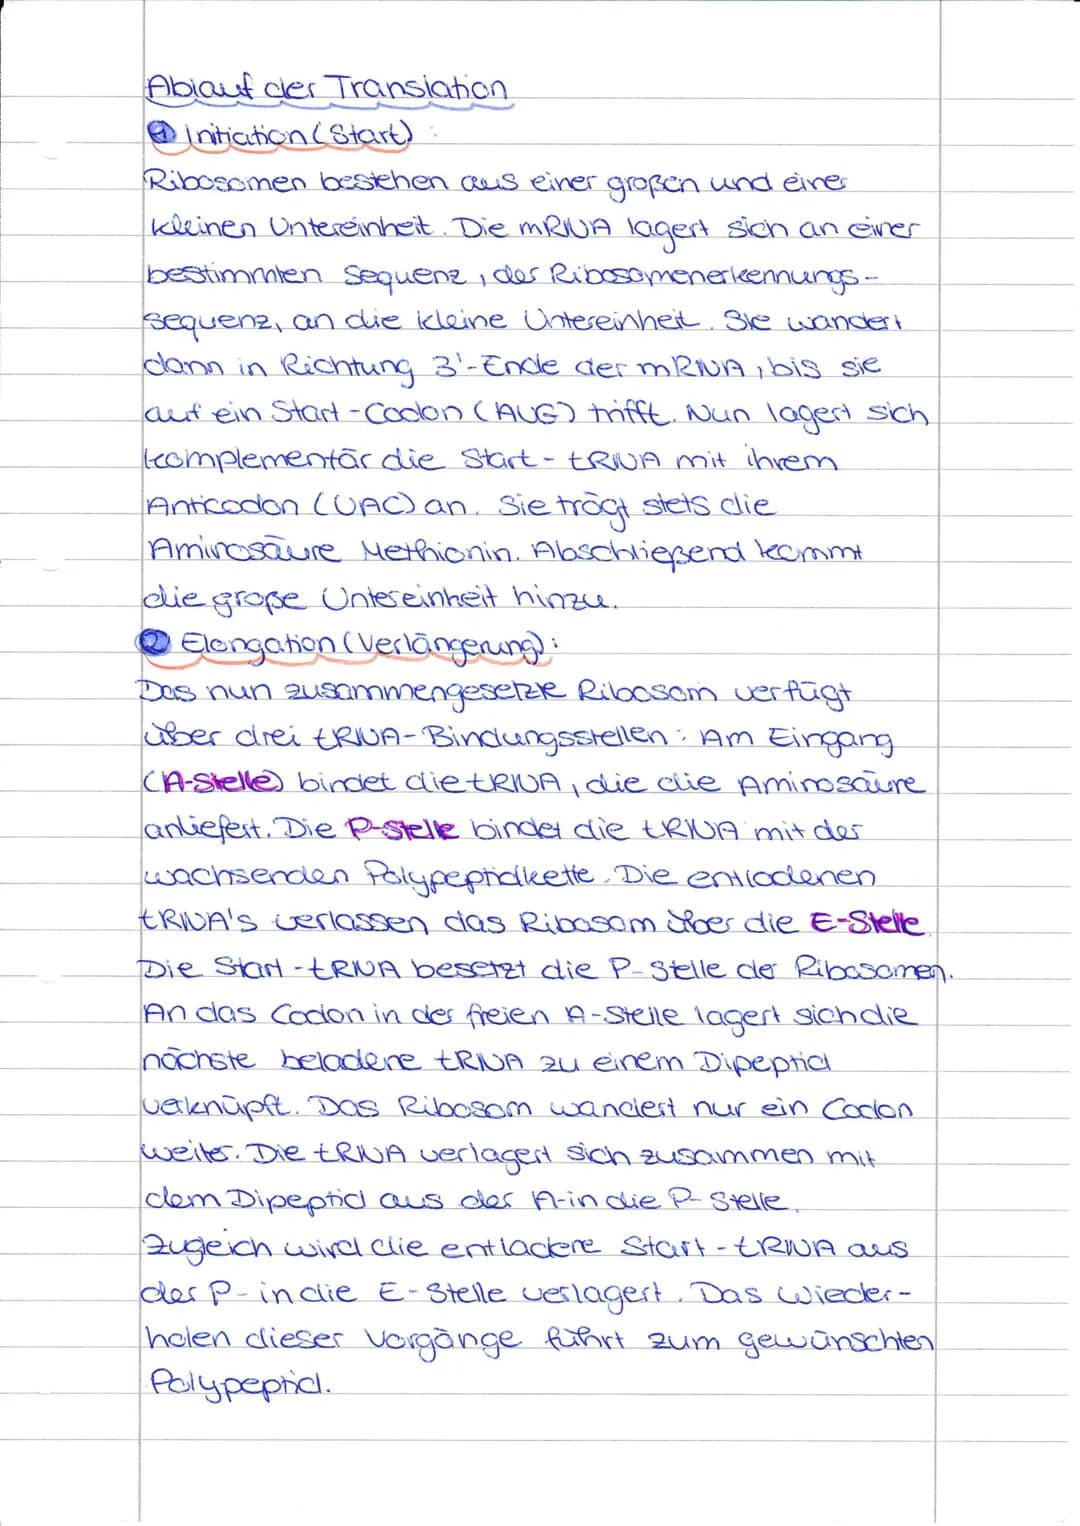 Ablauf der Translation
① Initiation (Start):
Ribosomen bestehen aus einer großen und einer
kleinen Untereinheit. Die mRNA lagert sich an einer
bestimmten Sequenz, der Ribosomenerkennungs-
sequenz, an die kleine Untereinheit. Sie wandert
dann in Richtung 3'-Ende der mRNA, bis sie
auf ein Start-Codon (AUG) trifft. Nun lagert sich
komplementär die Start-tRNA mit ihrem
Anticodon (UAC) an. Sie trägt stets die
Aminosäure Methionin. Abschließend kommt
die große Untereinheit hinzu.
② Elongation (Verlängerung):
Das nun zusammengesetzte Ribosom verfügt
über drei tRNA-Bindungsstellen: Am Eingang
(A-Stelle) bindet die tRNA, die die Aminosäure
anliefert. Die P-Stelle bindet die tRNA mit der
wachsenden Polypeptidkette. Die entladenen
tRNA's verlassen das Ribosom über die E-Stelle.
Die Start-tRNA besetzt die P-Stelle der Ribosomen.
An das Codon in der freien A-Stelle lagert sich die
nächste beladene tRNA zu einem Dipeptid
verknüpft. Das Ribosom wandert nur ein Codon
weiter. Die tRNA verlagert sich zusammen mit
dem Dipeptid aus der A-in die P-Stelle.
Zugleich wird die entladene Start-tRNA aus
der P-in die E-Stelle verlagert. Das Wieder-
holen dieser Vorgänge führt zum gewünschten
Polypeptid.